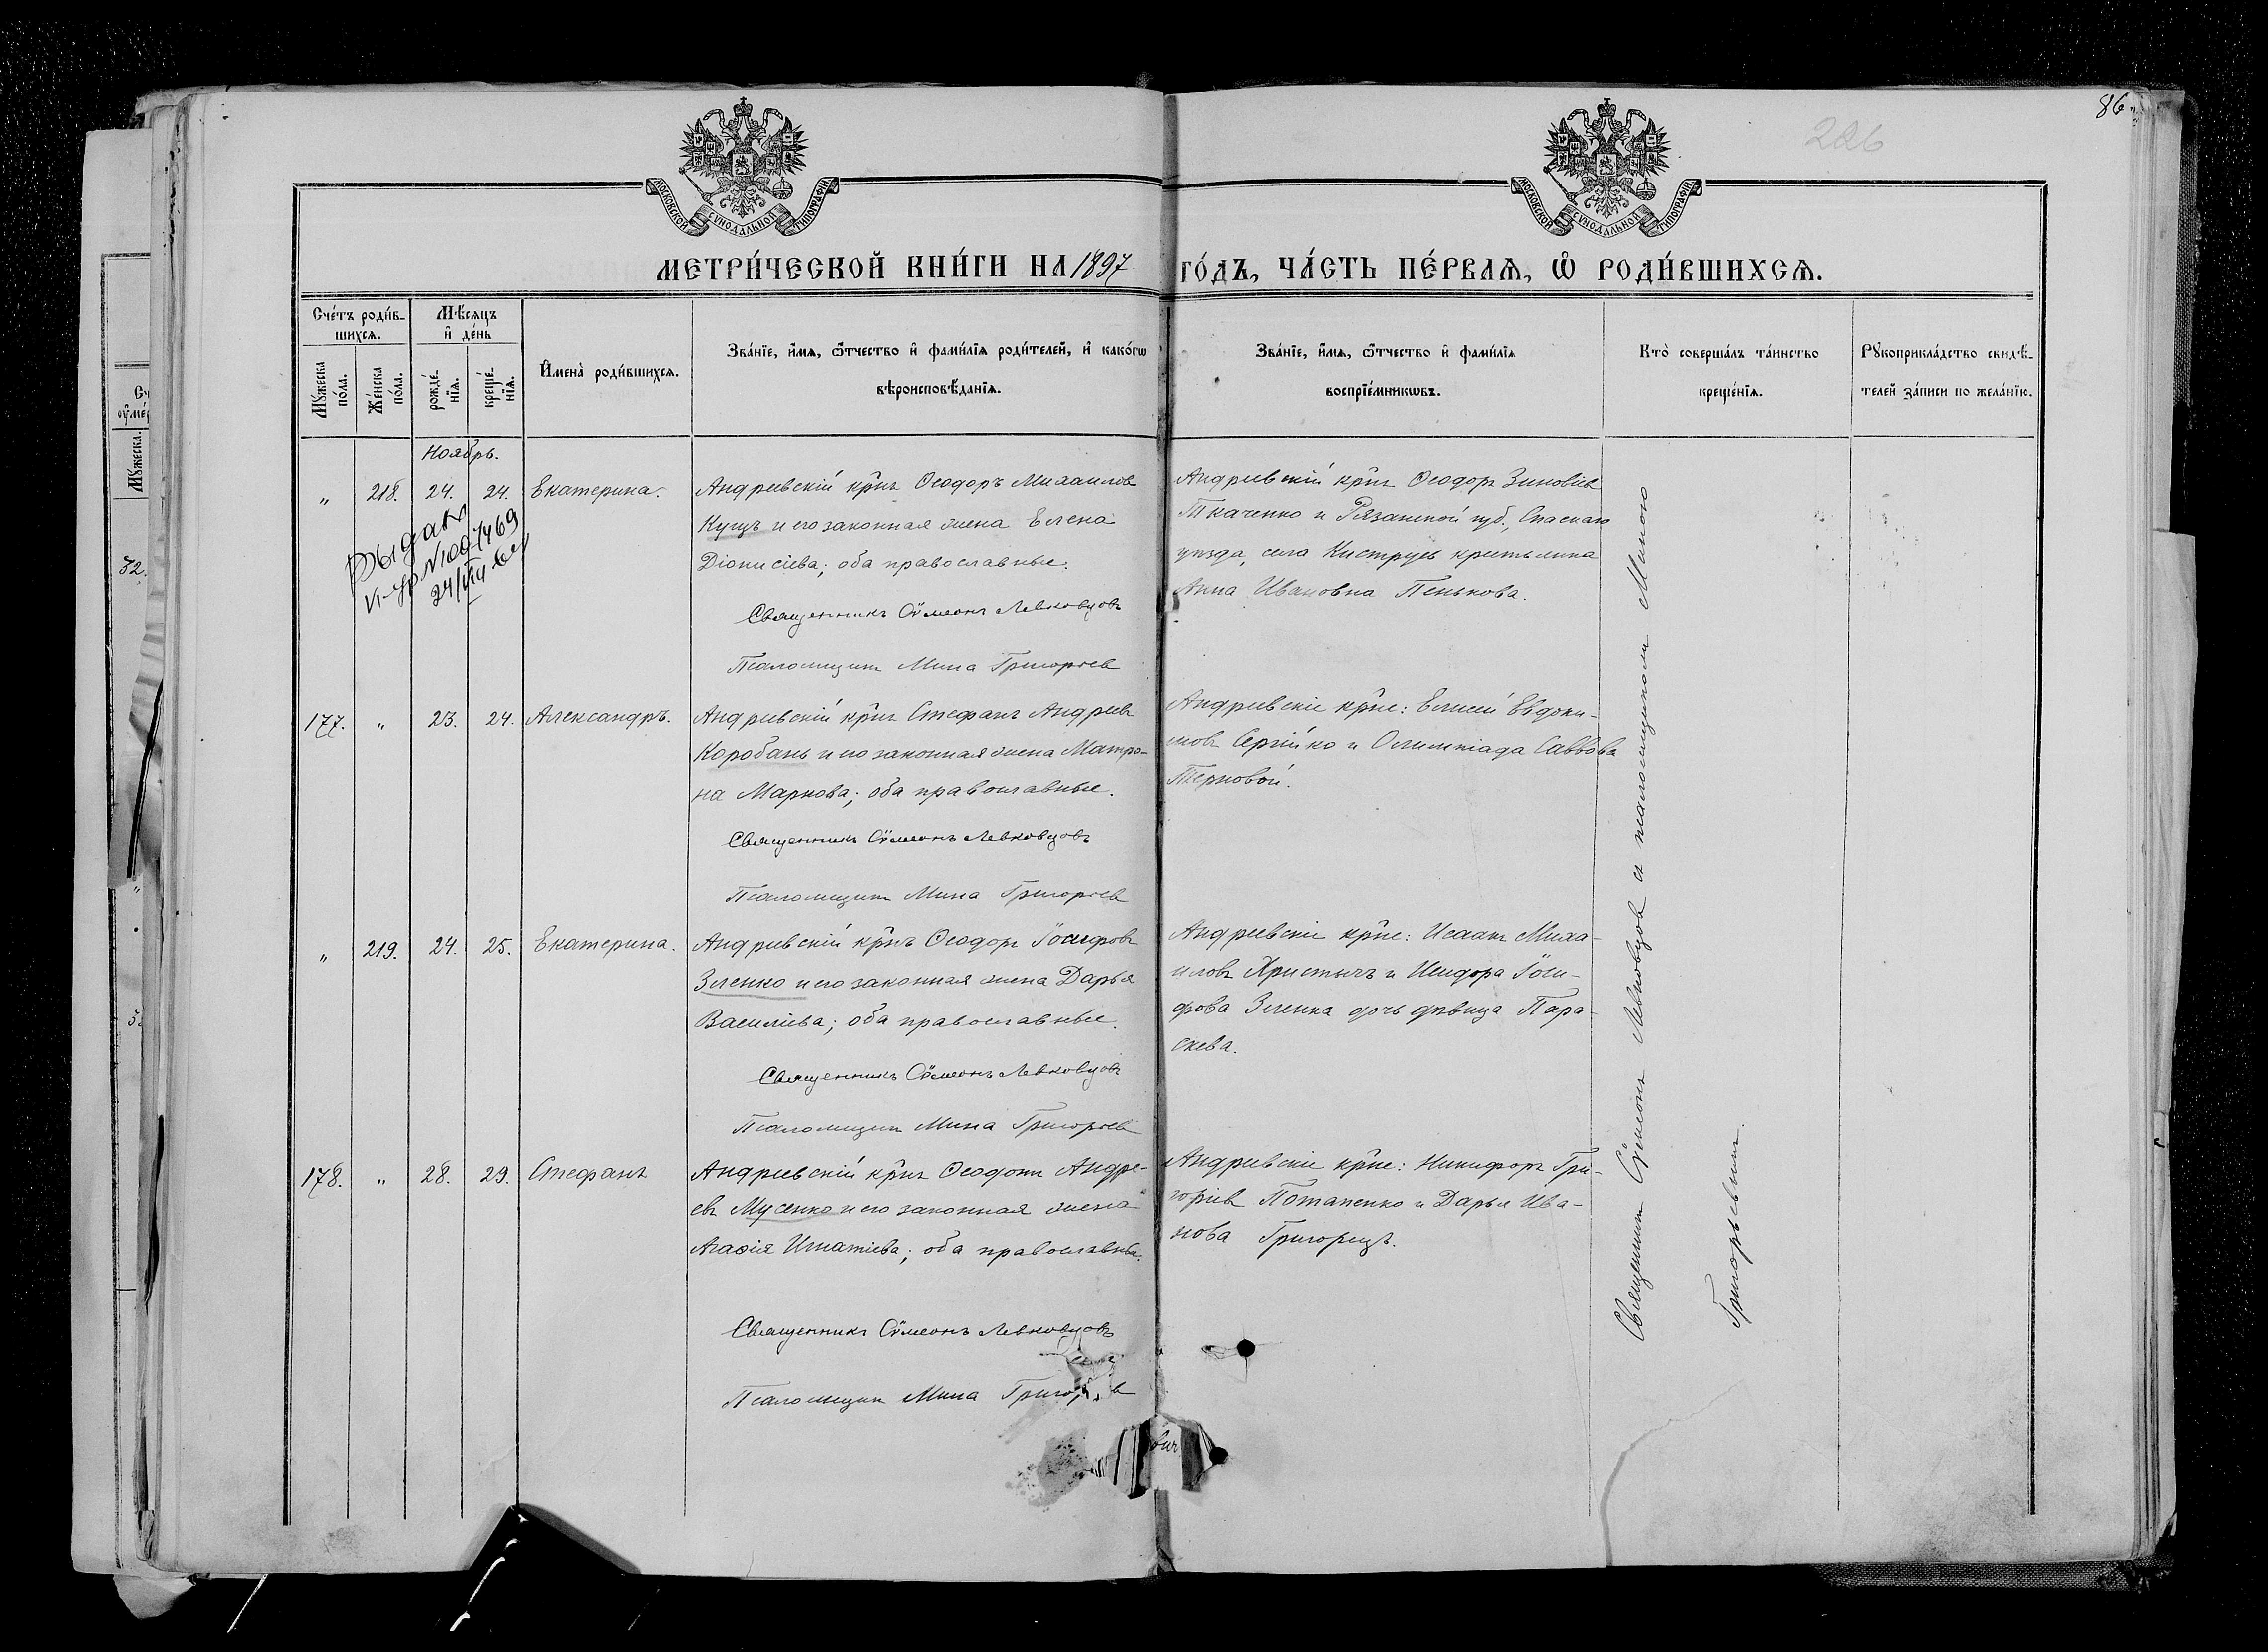 86
226
МОСКОВСКОЙ СѴНОДАЛЬНОЙ ТИПОГРАФІИ.
МОСКОВСКОЙ СѴНОДАЛЬНОЙ ТИПОГРАФІИ.
МЕТРИ́ЧЕСКОЙ КНИ́ГИ НА 1897 ГО́ДЪ, ЧА́СТЬ ПЕ́РВАѦ, Ѡ҆ РОДИ́ВШИХСѦ.
Сче́тъ роди́в-
шихсѧ.
Мѣ́сѧцъ
и҆ де́нь
Мꙋ́жеска
по́ла.
Же́нска
по́ла.
рожде́-
нїѧ.
креще́-
нїѧ.
И҆мена̀ роди́вшихсѧ.
Зва́нїе, и҆́мѧ, ѻ҆́тчество и҆ фами́лїѧ роди́телей, и҆ како́гѡ
вѣроисповѣ́данїѧ.
Зва́нїе, и҆́мѧ, ѻ҆́тчество и҆ фами́лїѧ
воспрїе́мникѡвъ.
Кто̀ соверша́лъ та́инство
креще́нїѧ.
Рꙋкоприкла́дство свидѣ́-
телей за́писи по жела́нїю.
Ноябрь.
„ 218. 24. 24. Екатерина.
Андреевскій кр̃нъ Ѳеодоръ Михаиловъ
Куцъ и его законная жена Елена
Діонисіева; оба православные.
Священникъ Сѷмеонъ Левковцовъ
Псаломщикъ Мина Григорьевъ
Андреевскій кр̃нъ Ѳеодоръ Зиновіевъ
Ткаченко и Рязанской губ., Спаскаго
уѣзда, села Киструсъ крестьянка
Анна Ивановна Пенькова.
Выдан
24/
177. „ 23. 24. Александръ.
Андреевскій кр̃нъ Стефанъ Андреевъ
Коробань и его законная жена Матро-
на Маркова; оба православные.
Священникъ Сѷмеонъ Левковцовъ
Псаломщикъ Мина Григорьевъ
Андреевскіе кр̃не: Елисей Евдоки-
мовъ Сергійко и Олимпіада Саввова
Терновой.
„ 219. 24. 25. Екатерина.
Андреевскій кр̃нъ Ѳеодоръ Іосифовъ
Зленко и его законная жена Дарья
Василіева; оба православные.
Священникъ Сѷмеонъ Левковцовъ
Псаломщикъ Мина Григорьевъ
Андреевскіе кр̃не: Исаакъ Миха-
иловъ Христычъ и Исидора Іоси-
фова Зленка дочь дѣвица Пара-
скева.
178. „ 28. 29. Стефанъ
Андреевскій кр̃нъ Ѳеодотъ Андре-
евъ Мусенко и его законная жена
Агаѳія Игнатіева; оба православные.
Священникъ Сѷмеонъ Левковцовъ
Псаломщикъ Мина
Андреевскіе кр̃не: Никифоръ Гри-
горіевъ Потапенко и Дарья Ива-
нова Григорецъ.
Священникъ Сѷмеонъ Левковцовъ съ псаломщикомъ Миною
Григорьевымъ.